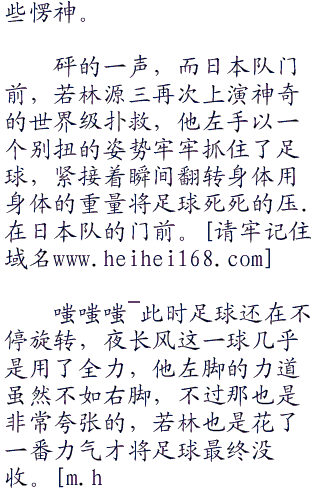 些愣神。
砰的一声，而日本队门
前，若林源三再次上演神奇
的世界级扑救，他左手以一
个别扭的姿势牢牢抓住了足
球，紧接着瞬间翻转身体用
身体的重量将足球死死的压.
在日本队的门前。[请牢记住
域名www.heihei168.com]
嗤嗤嗤¯此时足球还在不
停旋转，夜长风这一球几乎
是用了全力，他左脚的力道
虽然不如右脚，不过那也是
非常夸张的，若林也是花了
一番力气才将足球最终没
收。[m.h